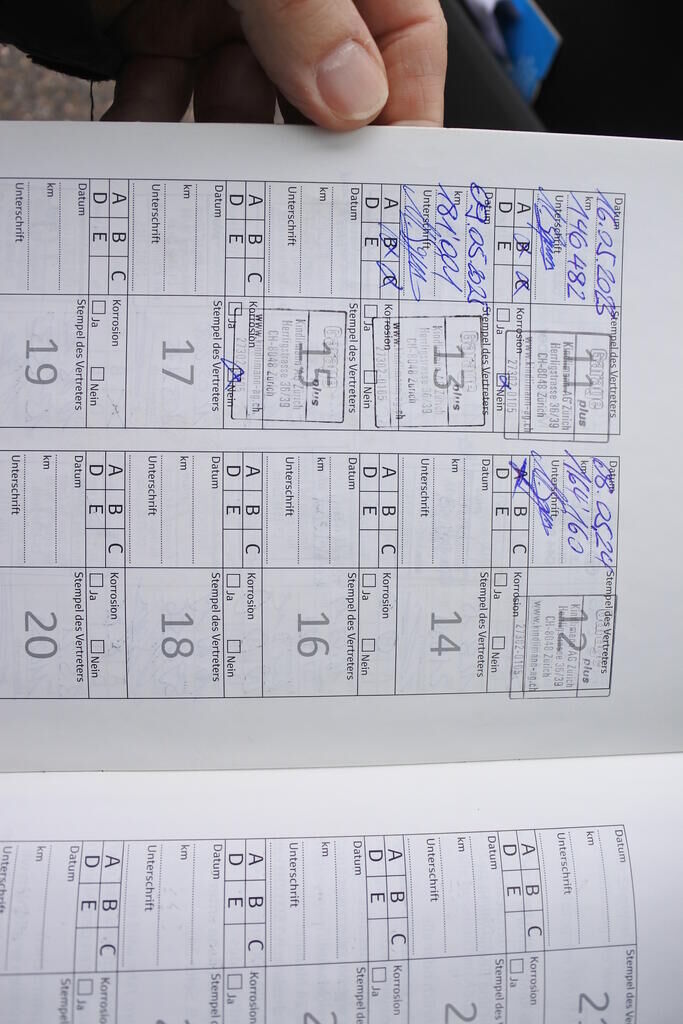 Datum
16.05.2023
km
146 482
Unterschrift
A B C
D E
Stempel des Vertreters
Garage
11 plus
Kindlimann AG Zürich
Herrligstrasse 36/39
CH-8048 Zürich
27392-0105
www.kindlimann-ag.ch
Korrosion
Ja Nein
Datum
08.05.24
km
164'160
Unterschrift
A B C
D E
Stempel des Vertreters
12 plus
Kindlimann AG Zürich
Herrligstrasse 36/39
CH-8048 Zürich
www.kindlimann-ag.ch
27392-0105
Korrosion
Ja
Datum
05.2025
km
181'001
Unterschrift
A B C
D E
Stempel des Vertreters
13 plus
Herrligstrasse 36/39
CH-8048 Zürich
27392-0105
Ja
Datum
km
Unterschrift
A B C
D E
Stempel des Vertreters
14
Korrosion
Ja Nein
km
Unterschrift
A B C
D E
plus
Kindlimann AG Zürich
Herrligstrasse 36/39
CH-8048 Zürich
www.kindlimann-ag.ch
Korrosion
Ja Nein
Datum
km
Unterschrift
A B C
D E
Stempel des Vertreters
16
Korrosion
Ja Nein
Datum
km
Unterschrift
A B C
D E
Stempel des Vertreters
17
Korrosion
Ja Nein
Datum
km
Unterschrift
A B C
D E
Stempel des Vertreters
18
Korrosion
Ja Nein
Datum
km
Unterschrift
Stempel des Vertreters
19
Datum
km
Unterschrift
Stempel des Vertreters
20
Datum
km
Unterschrift
A B C
D E
Stempel des V
2
Korrosion
Ja
Datum
km
Unterschrift
A B C
D E
Stempel des
2
Korrosion
Ja
Datum
km
Unterschrift
A B C
D E
Stempel de
2
Korrosion
Ja
Datum
km
Unterschrift
A B C
D E
Stempel d
Korrosion
Ja
Datum
km
Unterschrift
Stempel